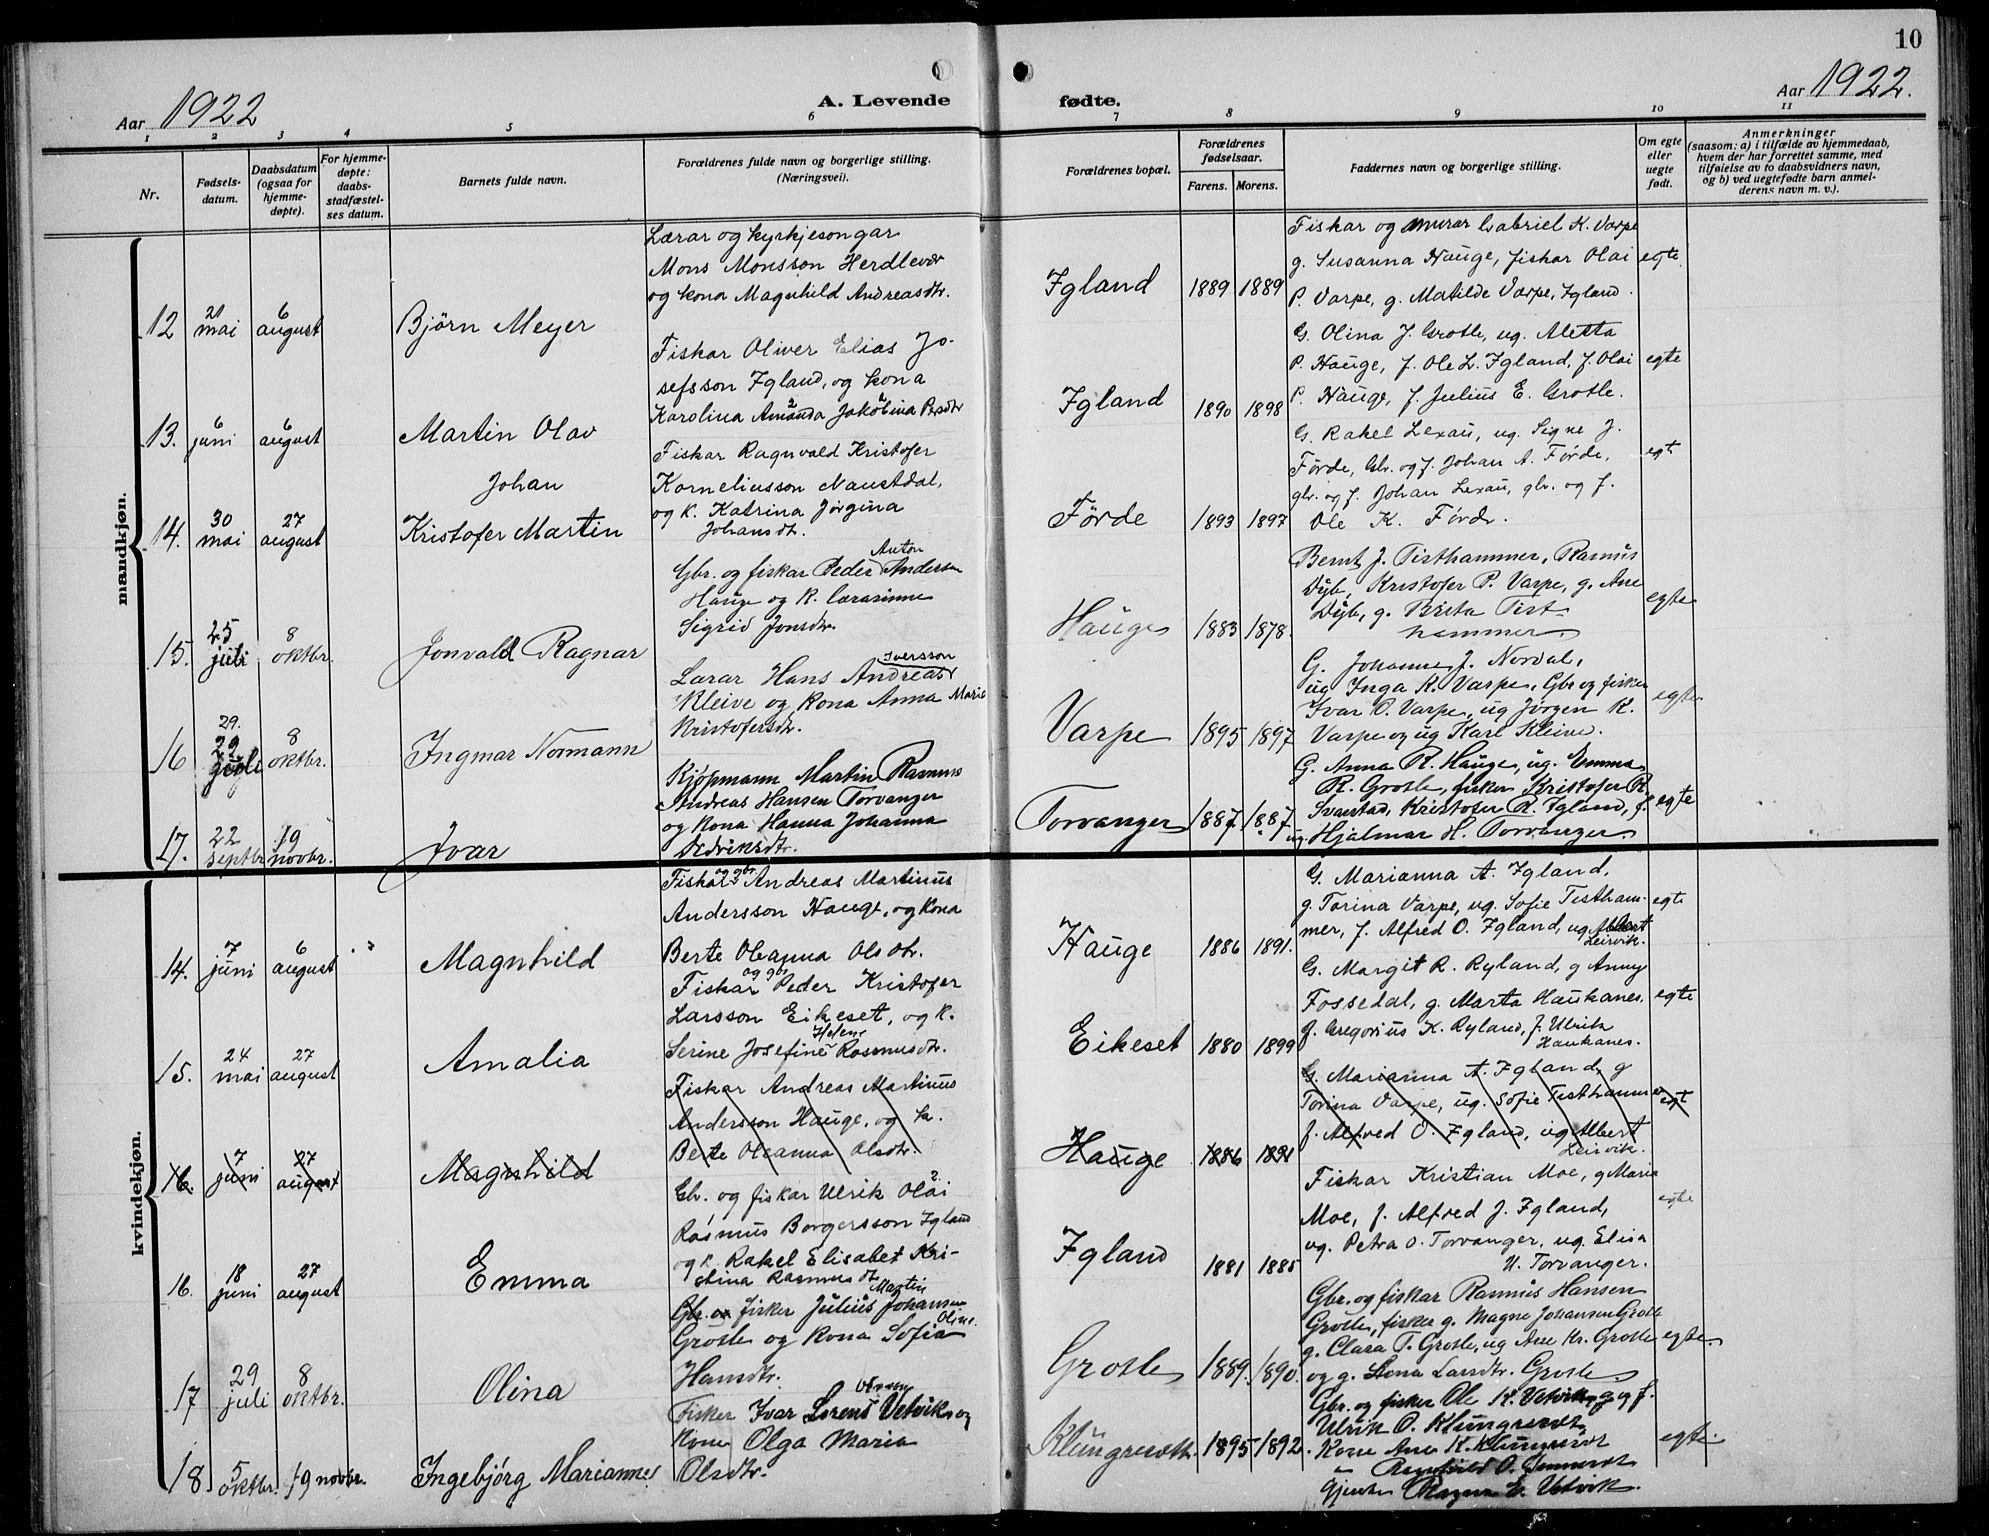 10
Aar 1922
A. Levende fødte.
Aar 1922.
1 2 3 4 5 6 7 8 9 10 11
Nr.
Fødsels-
datum.
Daabsdatum
(ogsaa for
hjemme-
døpte).
For hjemme-
døpte:
daabs-
stadfæstel-
ses datum.
Barnets fulde navn.
Forældrenes fulde navn og borgerlige stilling.
(Næringsvei).
Forældrenes bopæl.
Forældrenes
fødselsaar.
Farens. Morens.
Faddernes navn og borgerlige stilling.
Om egte
eller
uegte
født.
Anmerkninger
(saasom: a) i tilfælde av hjemmedaab,
hvem der har forrettet samme, med
tilføielse av to daabsvidners navn,
og b) ved uegtefødte barn anmel-
derens navn m. v.).
mandkjøn.
12 21 mai 6 august Bjørn Meyer
Lærar og kyrkjesongar
Mons Monsson Herdlevær
og kona Magnhild Andreasdtr.
Igland 1889 1889
Fiskar og murar Gabriel K. Varpe
g. Susanna Hauge, fiskar Olai
P. Varpe, g. Matilde Varpe, Igland.
egte
13. 6 juni 6 august Martin Olav
Fiskar Oliver Elias Jo-
sefsson Igland, og kona
Karolina Amanda Jakobina Persdtr
Igland 1890 1898
G. Olina J. Grotle, ug. Aletta
P. Hauge, f. Ole L. Igland, f. Olai
P. Hauge, f. Julius E. Grotle.
egte
14. 30 mai 27 august Johan
Kristofer Martin
Fiskar Ragnvald Kristofer
Korneliusson Naustdal,
og k. Katrina Jørgina
Johansdtr.
Førde 1893 1897
G. Rakel Lexau, ug. Signe J.
Førde, Gbr. og f. Johan A. Førde,
gbr. og f. Johan Lexau, gbr. og f.
Ole K. Førde.
egt
15. 25 juli 8 oktbr. Jonvald Ragnar
Gbr. og fiskar Peder Anton Andersen
Hauge og k. lærarinne
Sigrid Jonsdtr.
Hauge 1883 1878.
Bernt J. Tisthammer, Rasmus
Dyb, Kristofer P. Varpe, g. Ane
Dyb, g. Brita Tist-
hammer.
egte
16 29. juli 8 oktbr. Ingmar Normann
Lærar Hans Andreas Iversson
Kleive og kona Anna Maria
Kristofersdtr.
Varpe 1895 1897
G. Johanne J. Nordal,
ug Inga K. Varpe, Gbr og fisker
Ivar O. Varpe, ug Jørgen K.
Varpe og ug Karl Kleive.
egte
17. 22 septbr 19 novbr. Ivar
Kjøpmann Martin Rasmus
Andreas Hansen Torvanger
og kona Hanna Johanna
Didriksdtr.
Torvanger 1887 1887
G. Anna R. Hauge, ug. Emma
R. Grotle, fisker Kristofer R.
Svarstad, Kristofer R. Igland, f.
ug. Hjalmar H. Torvanger.
egte
kvindekjøn.
14. 7 juni 6 august Magnhild
Fiskar og gbr Andreas Martinus
Andersson Hauge, og kona
Berte Oleanna Olsdtr.
Hauge 1886 1891.
G. Marianna A. Igland,
g. Torina Varpe, ug. Sofie Tistham-
mer, f. Alfred O. Igland, ug Albert
Leirvik.
egte
15. 24 mai 27 august Amalia
Fiskar og gbr Peder Kristofer
Larsson Eikeset, og k.
Serine Josefine Helene Rasmusdtr.
Eikeset 1880 1899
G. Margit R. Ryland, g Anny
Fossedal, g. Marta Haukanes.
f. Gregorius K. Ryland, f. Ulrik
Haukanes.
egte
16. 7 juni 27 august Magnhild
Fiskar Andreas Martinus
Andersson Hauge, og k.
Berte Oleanna Olsdtr.
Hauge 1886 1891
G. Marianna A. Igland, g
Torina Varpe, ug. Sofie Tisthammer
f. Alfred O. Igland, ug Albert
Leirvik.
egt
16. 18 juni 27 august Emma
Gbr. og fiskar Ulrik Olai
Rasmus Borgersson Igland
og k. Rakel Elisabet Kri-
stina Rasmusdtr
Igland 1881 1885
Fiskar Kristian Moe, g Maria
Moe, f. Alfred J. Igland,
ug. Petra O. Torvanger, ug. Elisa
U. Torvanger.
egte
17 29 juli 8 oktbr. Olina
Gbr. og fisker Julius Martin Johansen
Grotle og kona Sofia Oline
Hansdtr.
Grotle 1889. 1890.
Gbr. og fiskar Rasmus Hansen
Grotle, fisker g. Magne Johansen Grotle
g. Clara T. Grotle, ug Ane Kr. Grotle
og g. Lona Larsdtr. Grotle.
egte
18 5 oktbr. 19 novbr. Ingebjørg Marianne
Fisker Ivar Lorens Vetvik og
Kone Olga Maria
Olsdtr.
1895 1892.
Gbr. og fisker Ole K. Vetvik, g og f.
Ulrik O.
Kone Ane K.
Vetvik.
egte